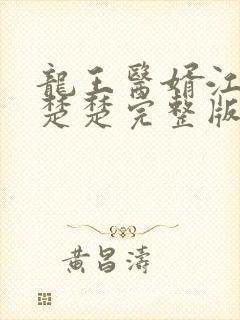 龍王醫婿江
楚楚完整版
黃昌濤